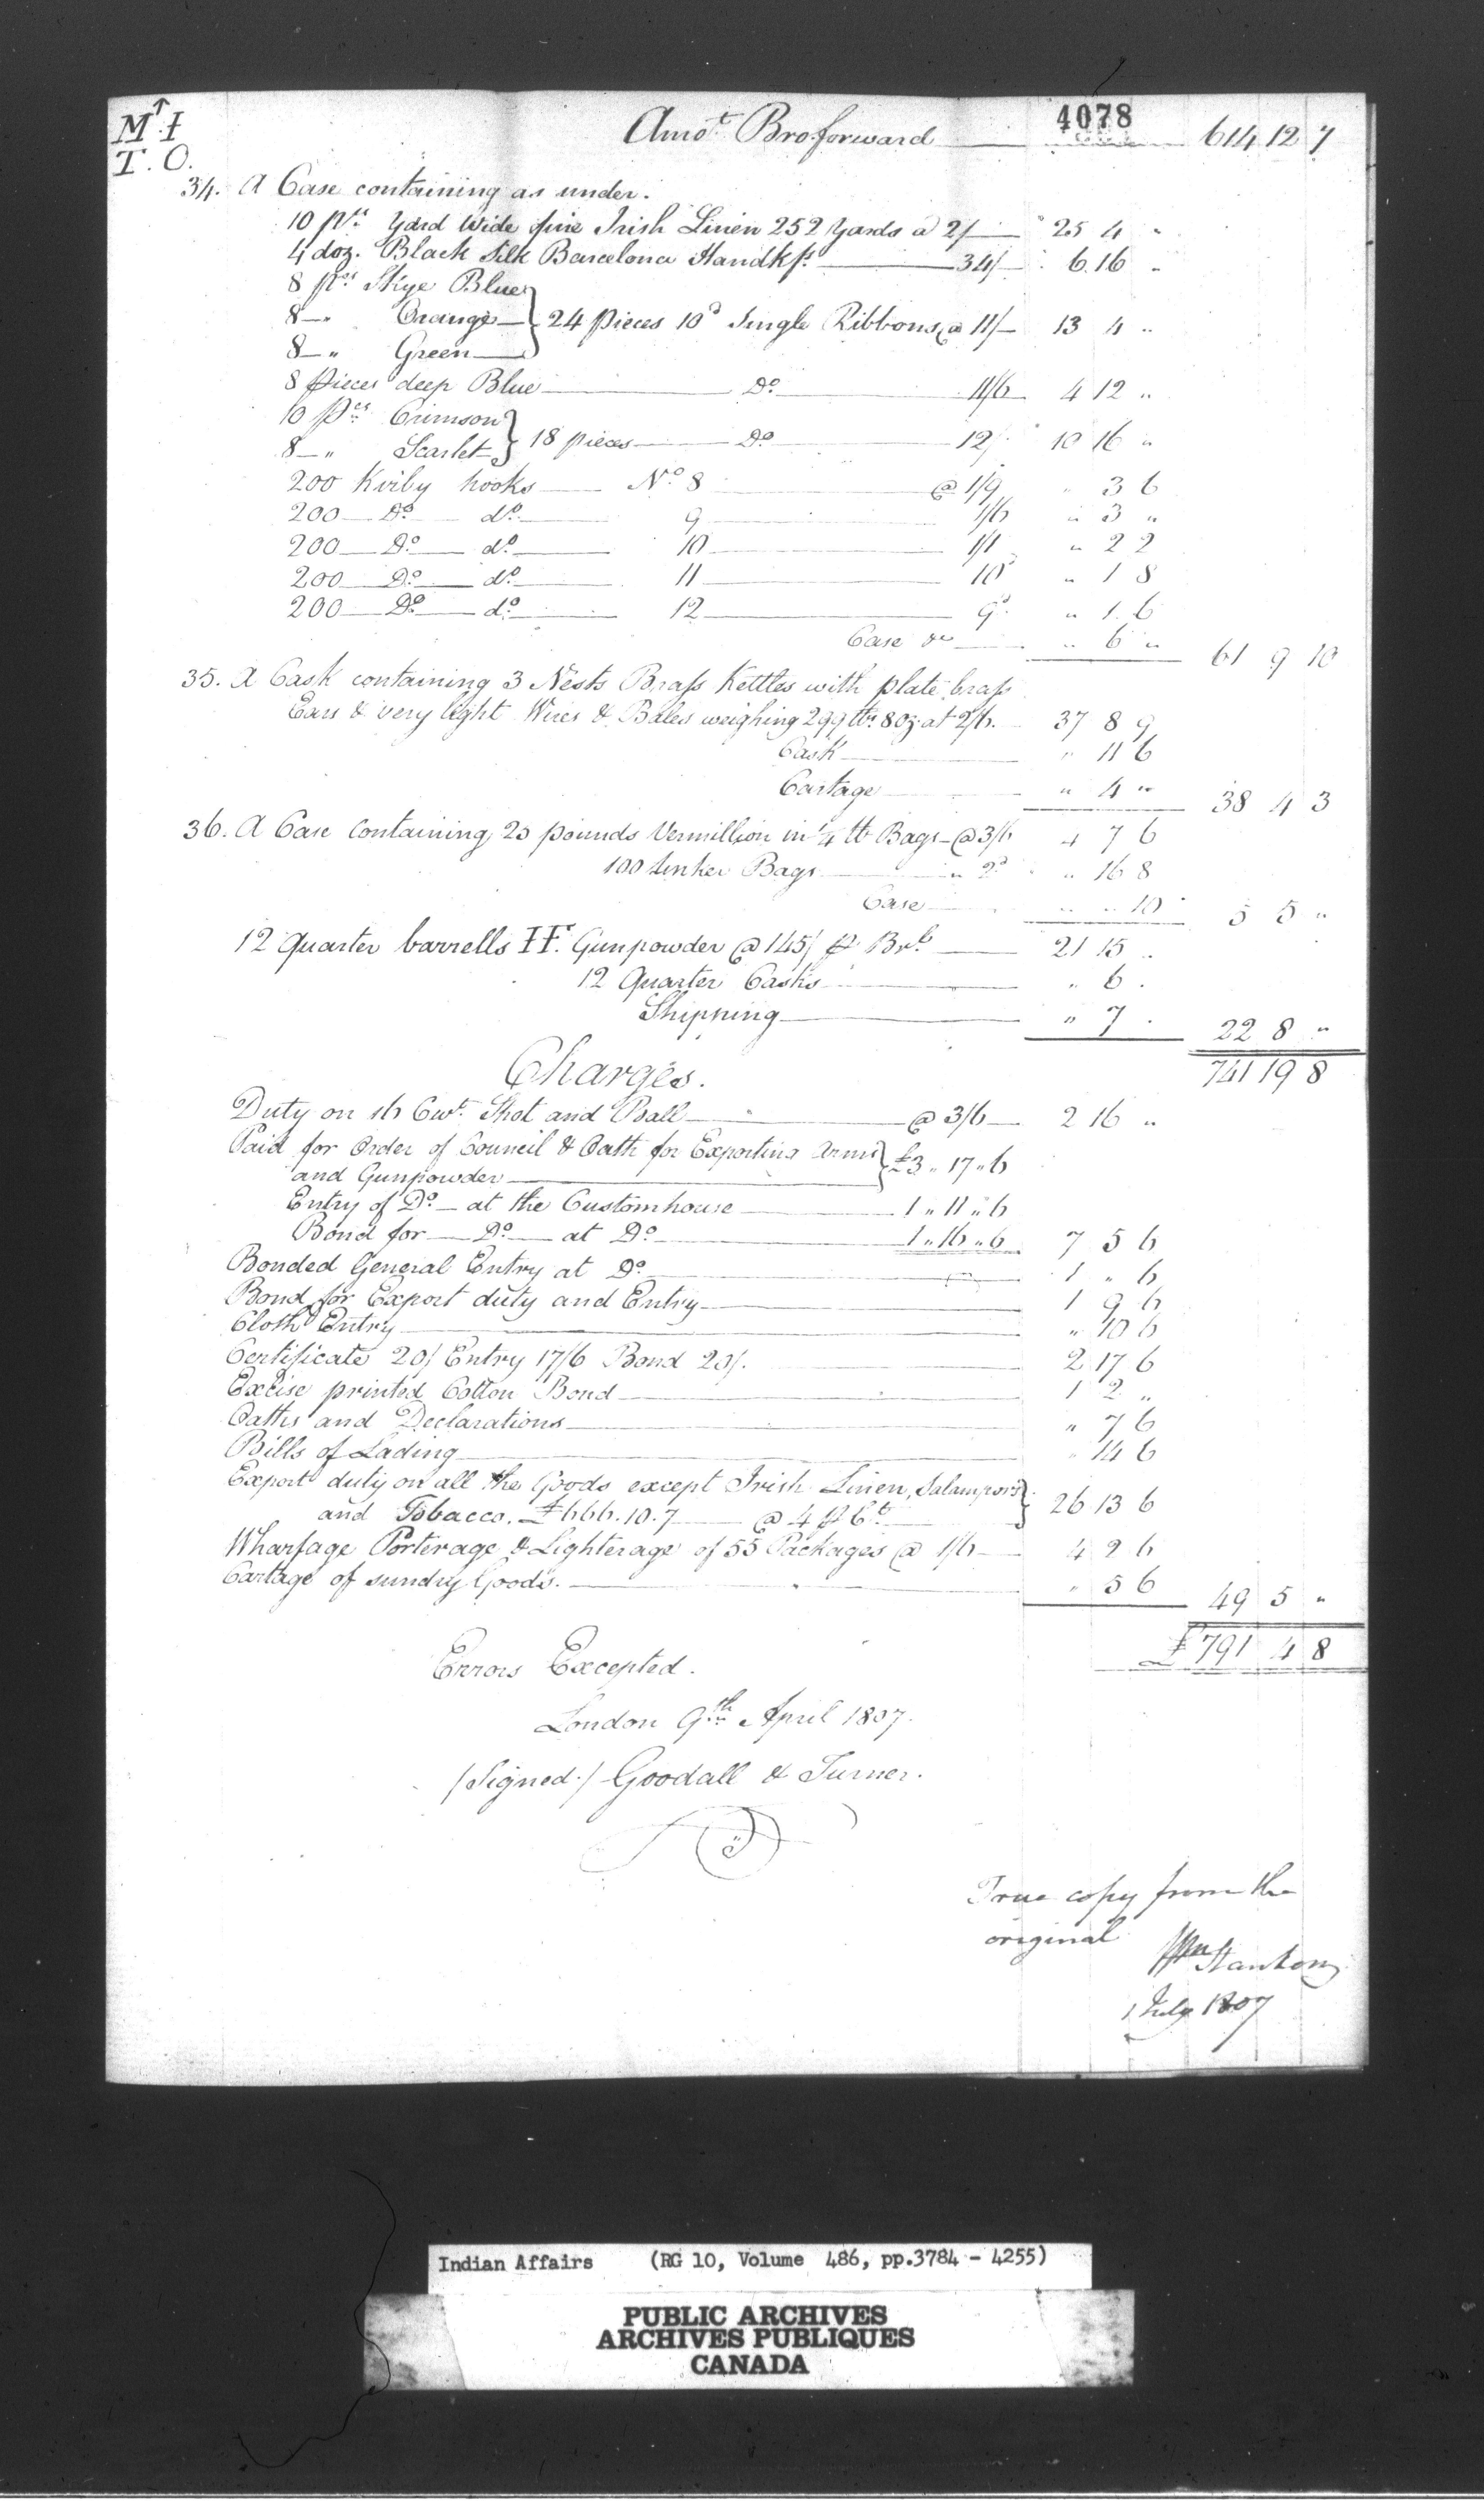 4078
M↑I
T.O.
Amot. Bro.forward 614 12 7
34. A Case containing as under.
10 ps. Yard Wide fine Irish Linen 252 Yards a 2/ 25 4 "
4 doz. Black Silk Barcelona Handkfs. 34/ 6 16 "
8 ps. Skye Blue
8 " Orange } 24 pieces 10d Single Ribbons @ 11/ 13 4 "
8 " Green
8 pieces deep Blue Do 11/6 4 12 "
10 pces Crimson
8 " Scarlet } 18 pieces Do 12/ 10 16 "
200 Kirby hooks No 8 @ 1/9 " 3 6
200 Do do 9 1/6 " 3 "
200 Do do 10 1/1 " 2 2
200 Do do 11 10d " 1 8
200 Do do 12 9d " 1 6
Case &c " 6 " 61 9 10
35. A Cask containing 3 Nests Brass Kettles with plate brass
Ears & very light Wires & Bales weighing 299 lbs 8 oz. at 2/6. 37 8 9
Cask " 11 6
Cartage " 4 " 38 4 3
36. A Case containing 25 pounds Vermillion in ¼ lb Bags @ 3/6 4 7 6
100 Bags " 2d " 16 8
Case " " 10 5 5 "
12 Quarter barrells FF. Gunpowder @ 145/ p Brl. 21 15 "
12 Quarter Casks " 6 .
Shipping " 7 . 22 8 "
741 19 8
Charges.
Duty on 16 Cwt. Shot and Ball @ 3/6 2 16 "
Paid for Order of Council & Oath for Exporting Arms } £3 " 17 " 6
and Gunpowder
Entry of Do at the Customhouse 1 " 11 " 6
Bond for Do at Do 1 " 16 " 6 7 5 6
Bonded General Entry at Do 1 " 6
Bond for Export duty and Entry 1 9 6
Cloth Entry " 10 6
Certificate 20/ Entry 17/6 Bond 20/. 2 17 6
Excise printed Cotton Bond 1 2 "
Oaths and Declarations " 7 6
Bills of Lading " 14 6
Export duty on all the Goods except Irish Linen, Salampors
and Tobacco. £666.10.7 @ 4 p Ct. } 26 13 6
Wharfage Porterage & Lighterage of 55 Packages @ 1/6 4 2 6
Cartage of sundry Goods. " 5 6 49 5 "
£791 4 8
Errors Excepted.
London 9th April 1807.
/Signed./ Goodall & Turner.
True copy from the
original
1 July 1807
Indian Affairs (RG 10, Volume 486, pp.3784 - 4255)
PUBLIC ARCHIVES
ARCHIVES PUBLIQUES
CANADA